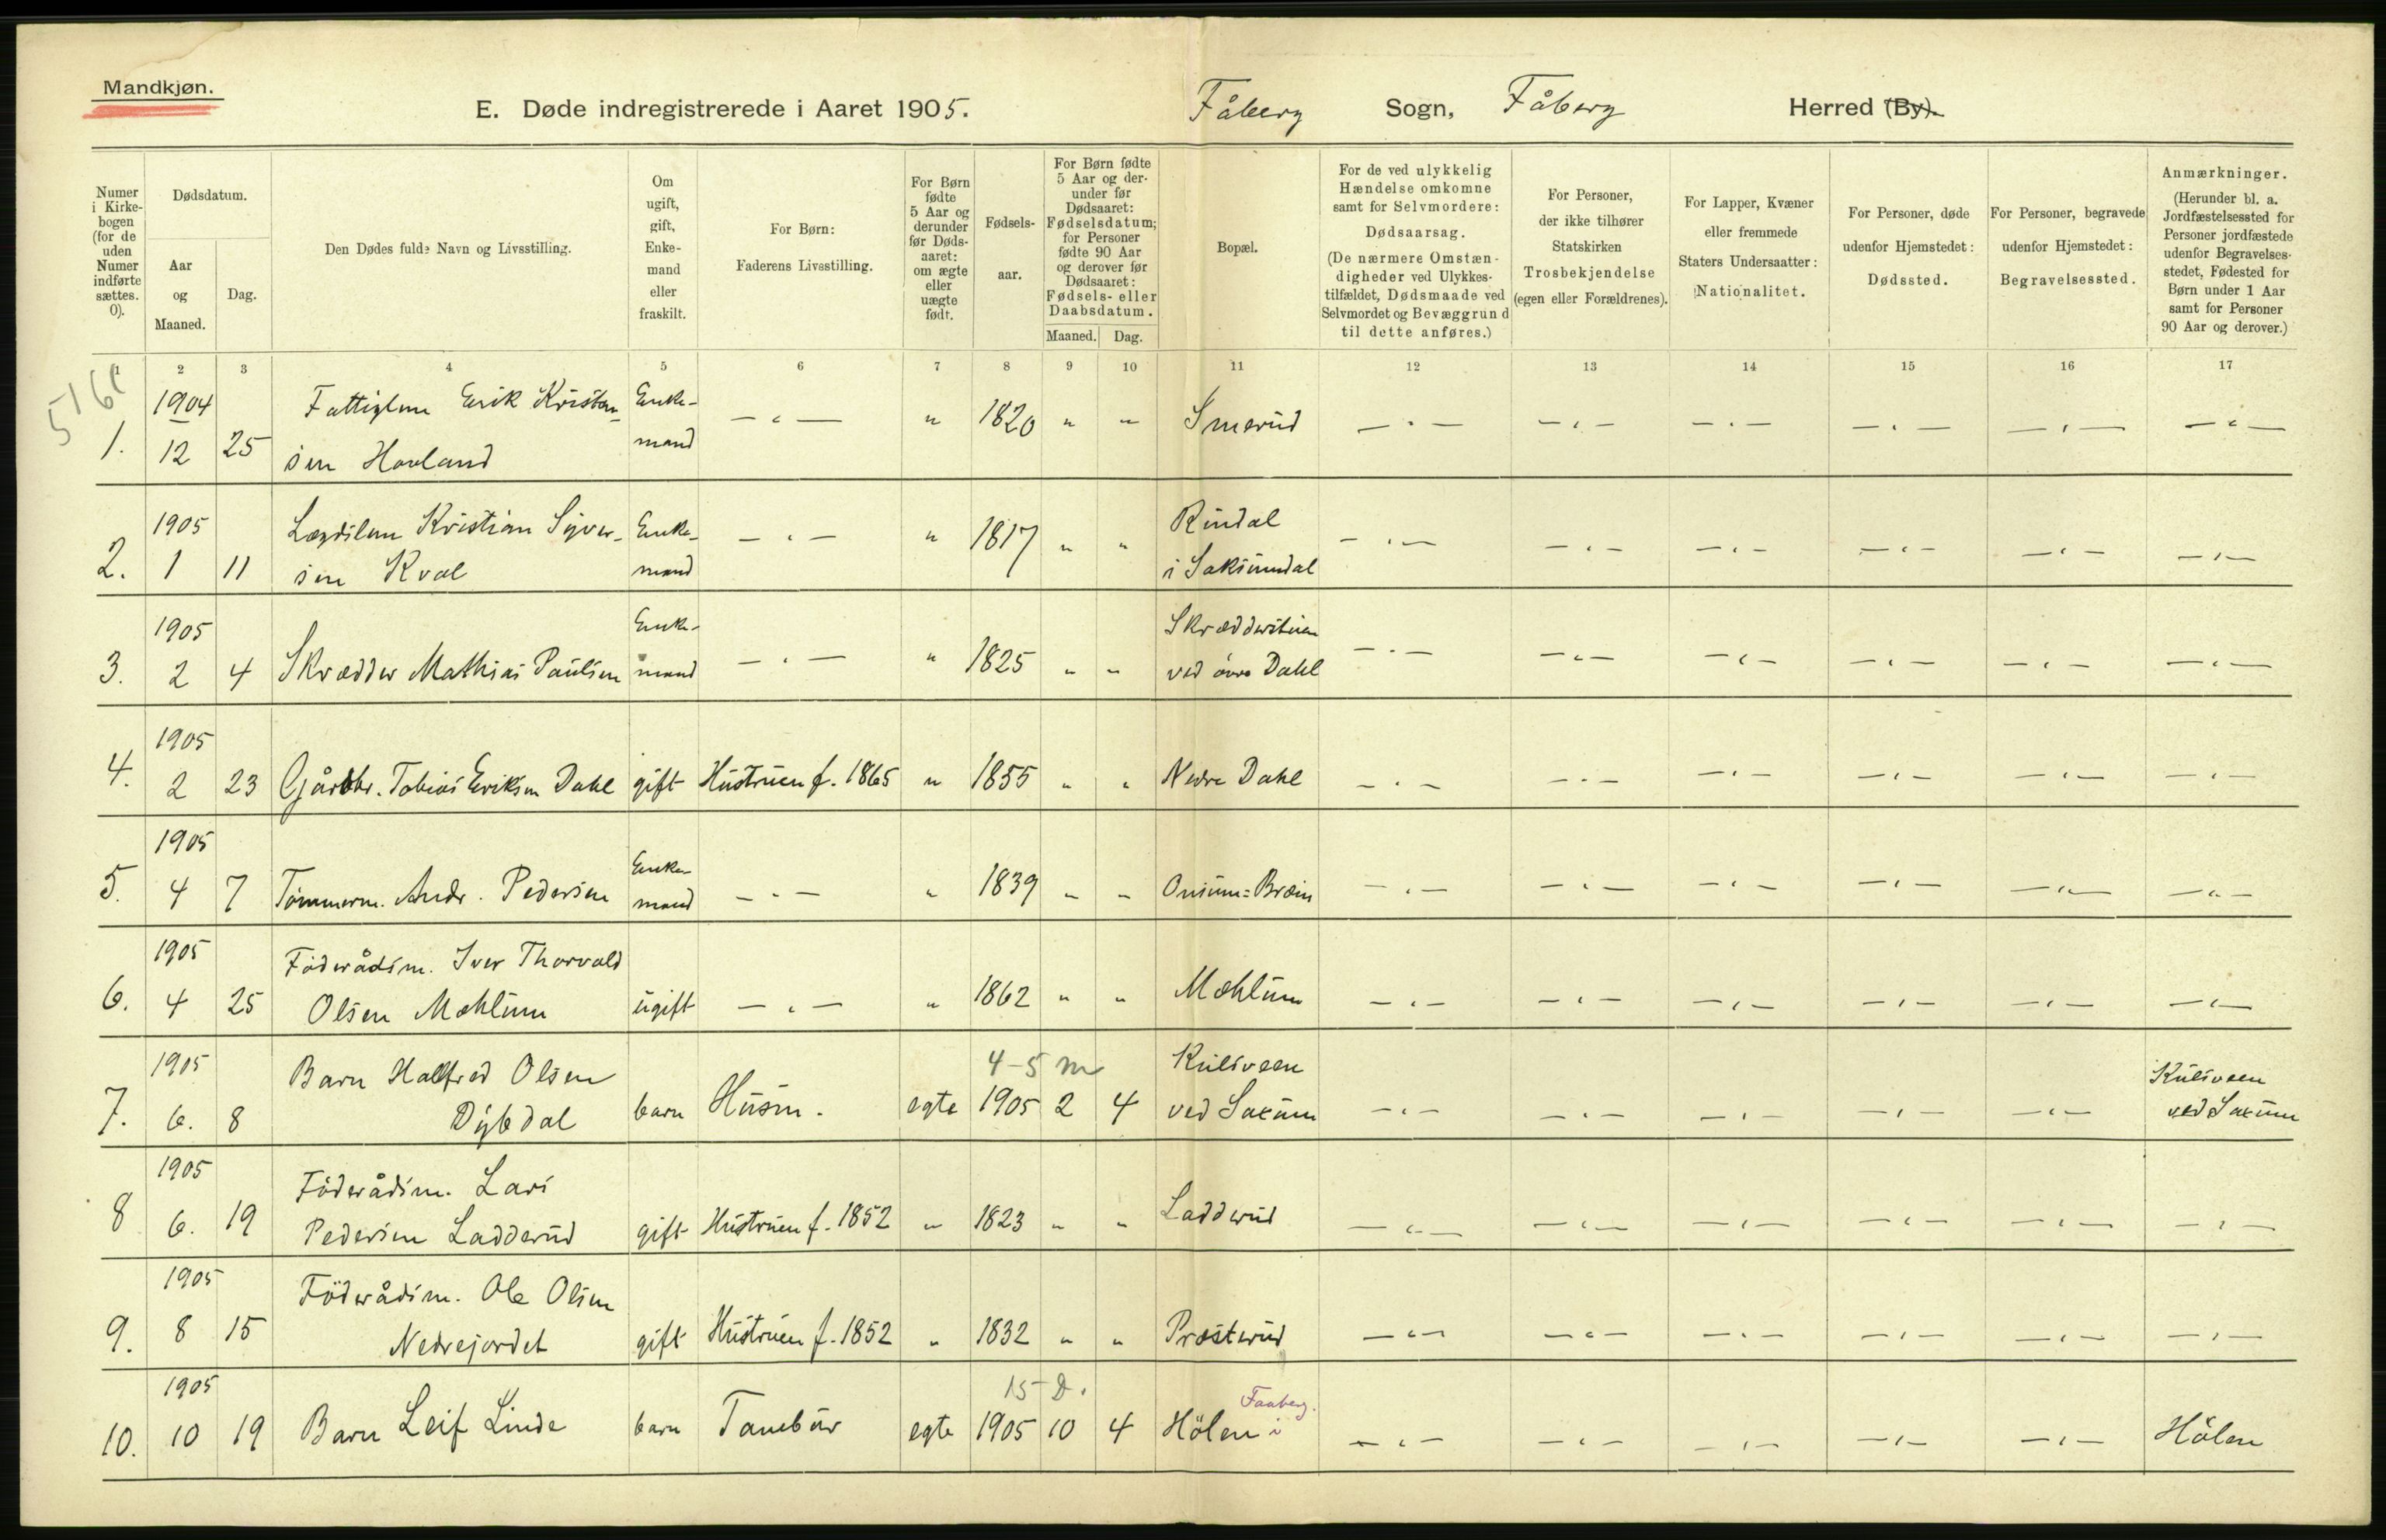 Mandkjøn.
E. Døde indregistrerede i Aaret 1905. Fåberg Sogn, Fåberg Herred (By).
Numer i Kirkebogen (for de uden Numer indførte sættes. 0).
Dødsdatum.
Aar og Maaned.
Dag.
Den Dødes fulde Navn og Livsstilling.
Om ugift, gift, Enkemand eller fraskilt.
For Børn: Faderens Livsstilling.
For Børn fødte 5 Aar og derunder før Dødsaaret: om ægte eller uægte født.
Fødselsaar.
For Børn fødte 5 Aar og derunder før Dødsaaret: Fødselsdatum; for Personer fødte 90 Aar og derover før Dødsaaret: Fødsels- eller Daabsdatum.
Maaned. Dag.
Bopæl.
For de ved ulykkelig Hændelse omkomne samt for Selvmordere: Dødsaarsag. (De nærmere Omstændigheder ved Ulykkestilfældet, Dødsmaade ved Selvmordet og Bevæggrund til dette anføres.)
For Personer, der ikke tilhører Statskirken Trosbekjendelse (egen eller Forældrenes).
For Lapper, Kvæner eller fremmede Staters Undersaatter: Nationalitet.
For Personer, døde udenfor Hjemstedet: Dødssted.
For Personer, begravede udenfor Hjemstedet: Begravelsessted.
Anmærkninger. (Herunder bl. a. Jordfæstelsessted for Personer jordfæstede udenfor Begravelsesstedet, Fødested for Børn under 1 Aar samt for Personer 90 Aar og derover.)
1 2 3 4 5 6 7 8 9 10 11 12 13 14 15 16 17
5161
1904 Fattiglem Erik Kristen- Enke-
1. 12 25 sen Hovland mand — " — " 1820 " " Smerud — " — — " — — " — — " — — " — — " —
1905 Lægdslem Kristian Syver- Enke- Rindal
2. 1 11 sen Kval mand — " — " 1817 " " i Saksumdal — " — — " — — " — — " — — " — — " —
1905 Enke- Skrædderstuen
3. 2 4 Skrædder Mathias Paulsen mand — " — " 1825 " " ved øvre Dahl — " — — " — — " — — " — — " — — " —
1905
4. 2 23 Gårdbr. Tobias Eriksen Dahl gift Hustruen f. 1865 " 1855 " " Nedre Dahl — " — — " — — " — — " — — " — — " —
1905 Enke-
5. 4 7 Tømmerm. Andr. Pedersen mand — " — " 1839 " " Onsum=Bræin — " — — " — — " — — " — — " — — " —
1905 Föderådsm. Iver Thorvald
6. 4 25 Olsen Mæhlum ugift — " — " 1862 " " Mæhlum — " — — " — — " — — " — — " — — " —
1905 Barn Halfred Olsen 4-5 m Kulsveen Kulsveen
7. 6. 8 Dybdal barn Husm. egte 1905 2 4 ved Saxum — " — — " — — " — — " — — " — ved Saxum
1905 Föderådsm. Lars
8 6. 19 Pedersen Ladderud gift Hustruen f. 1852 " 1823 " " Ladderud — " — — " — — " — — " — — " — — " —
1905 Föderådsm. Ole Olsen
9. 8 15 Nedrejordet gift Hustruen f. 1852 " 1832 " " Præsterud — " — — " — — " — — " — — " — — " —
1905 15 D. Faaberg.
10. 10 19 Barn Leif Linde barn Taneb̄ur egte 1905 10 4 Hölen i — " — — " — — " — — " — — " — Hölen